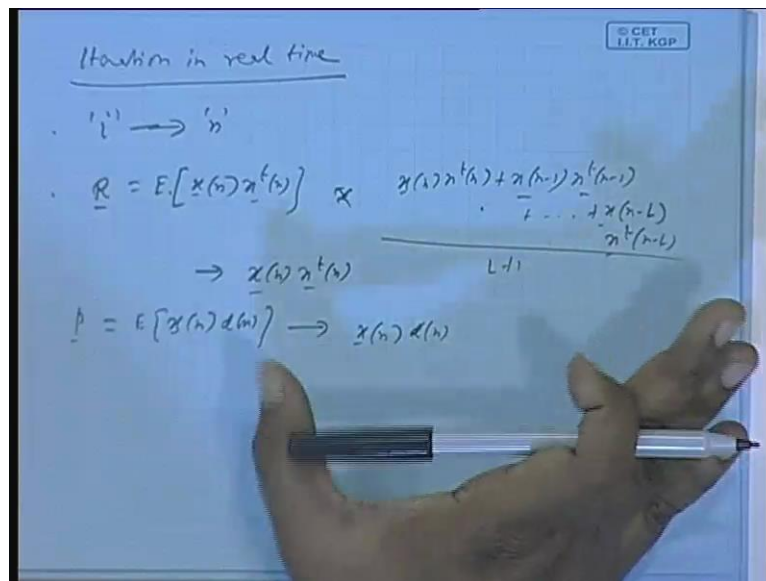 © CET
I.I.T. KGP
Iteration in real time
'i' → 'n'
R = E[x(n) x^t(n)] ≈ x(n) x^t(n) + x(n-1) x^t(n-1)
+ ... + x(n-L)
x^t(n-L)
L+1
→ x(n) x^t(n)
p = E[x(n) d(n)] → x(n) d(n)